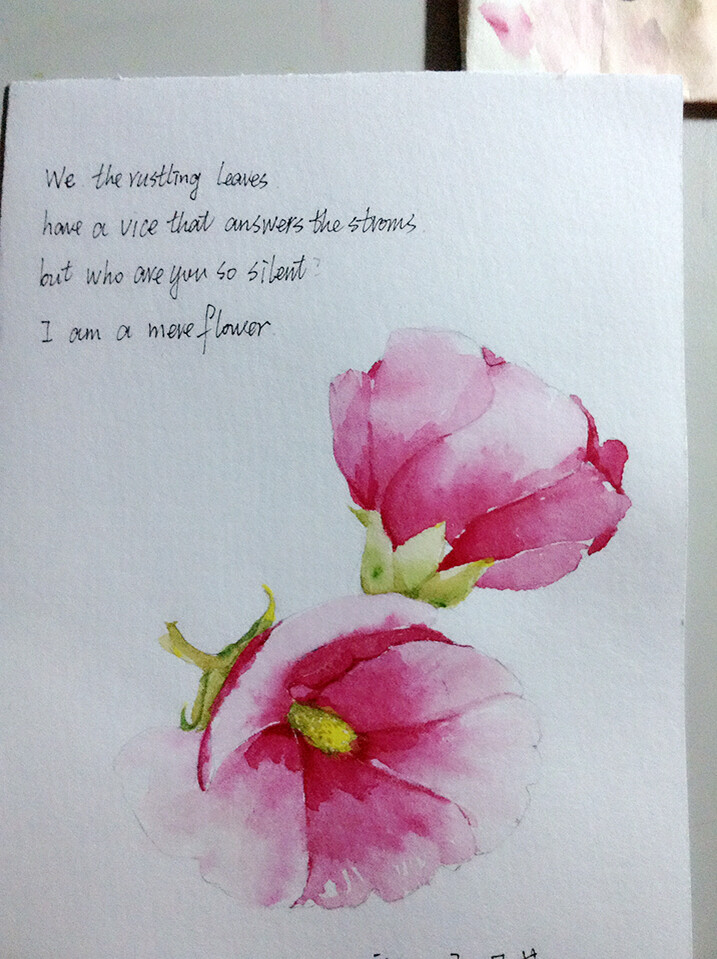 We the rustling leaves
have a vice that answers the stroms.
but who are you so silent?
I am a mere flower.